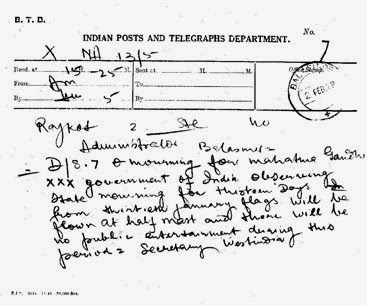 B. T. B.
No.
INDIAN POSTS AND TELEGRAPHS DEPARTMENT.
X NH 13/5
7
Recd. at 15 -25 M. Sent at H. M. Office Stamp
From To
By 5 By
FEB
Rajkot 2 40
Administrator
= D/8.7 mourning for mahatma Gandhi
XXX government of India observing
state mourning for thirteen Days
from thirtieth January flags will be
flown at half mast and there will be
no public entertainment during this
period = Secretary Westindia